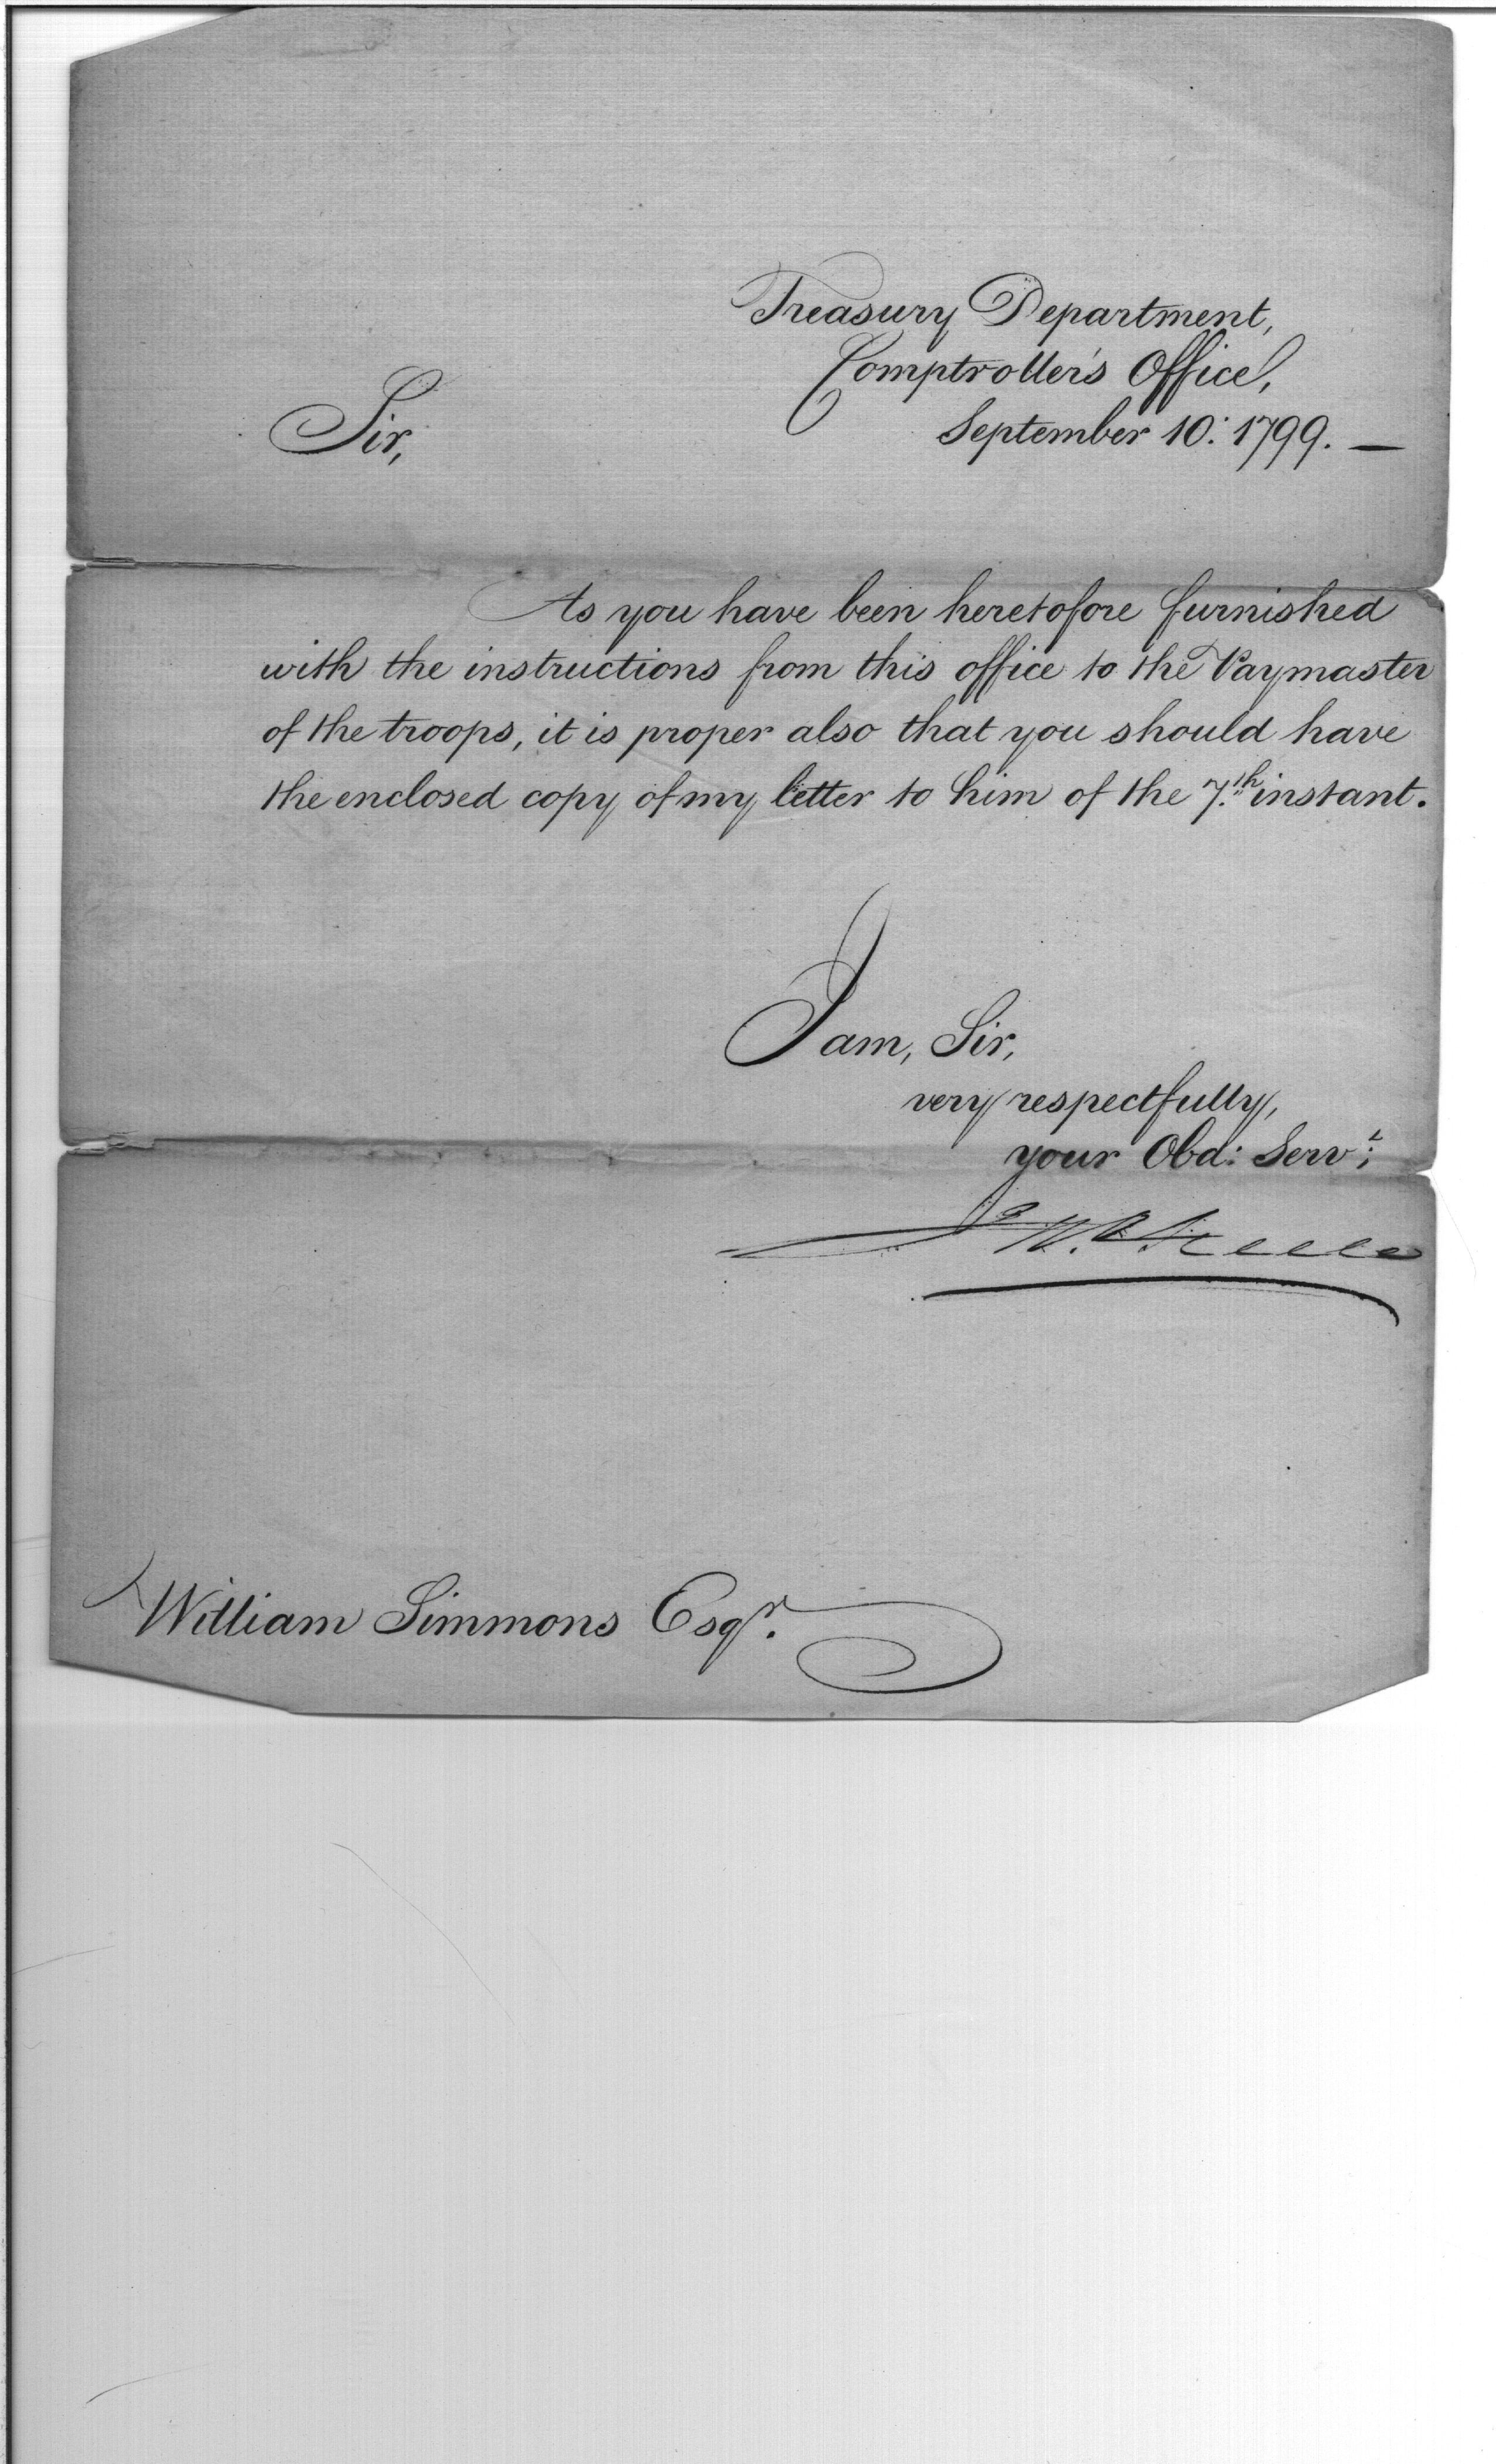 Treasury Department,
Comptroller's Office,
September 10: 1799. —
Sir,
As you have been heretofore furnished
with the instructions from this office to the Paymaster
of the troops, it is proper also that you should have
the enclosed copy of my letter to him of the 7.th instant.
I am, Sir,
very respectfully,
your Obd: Serv.t;
Jn Steele
William Simmons Esqr.